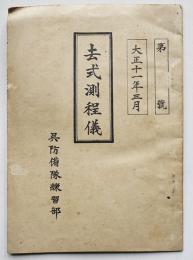 第 號
大正十一年三月
去式測程儀
呉防備隊練習部